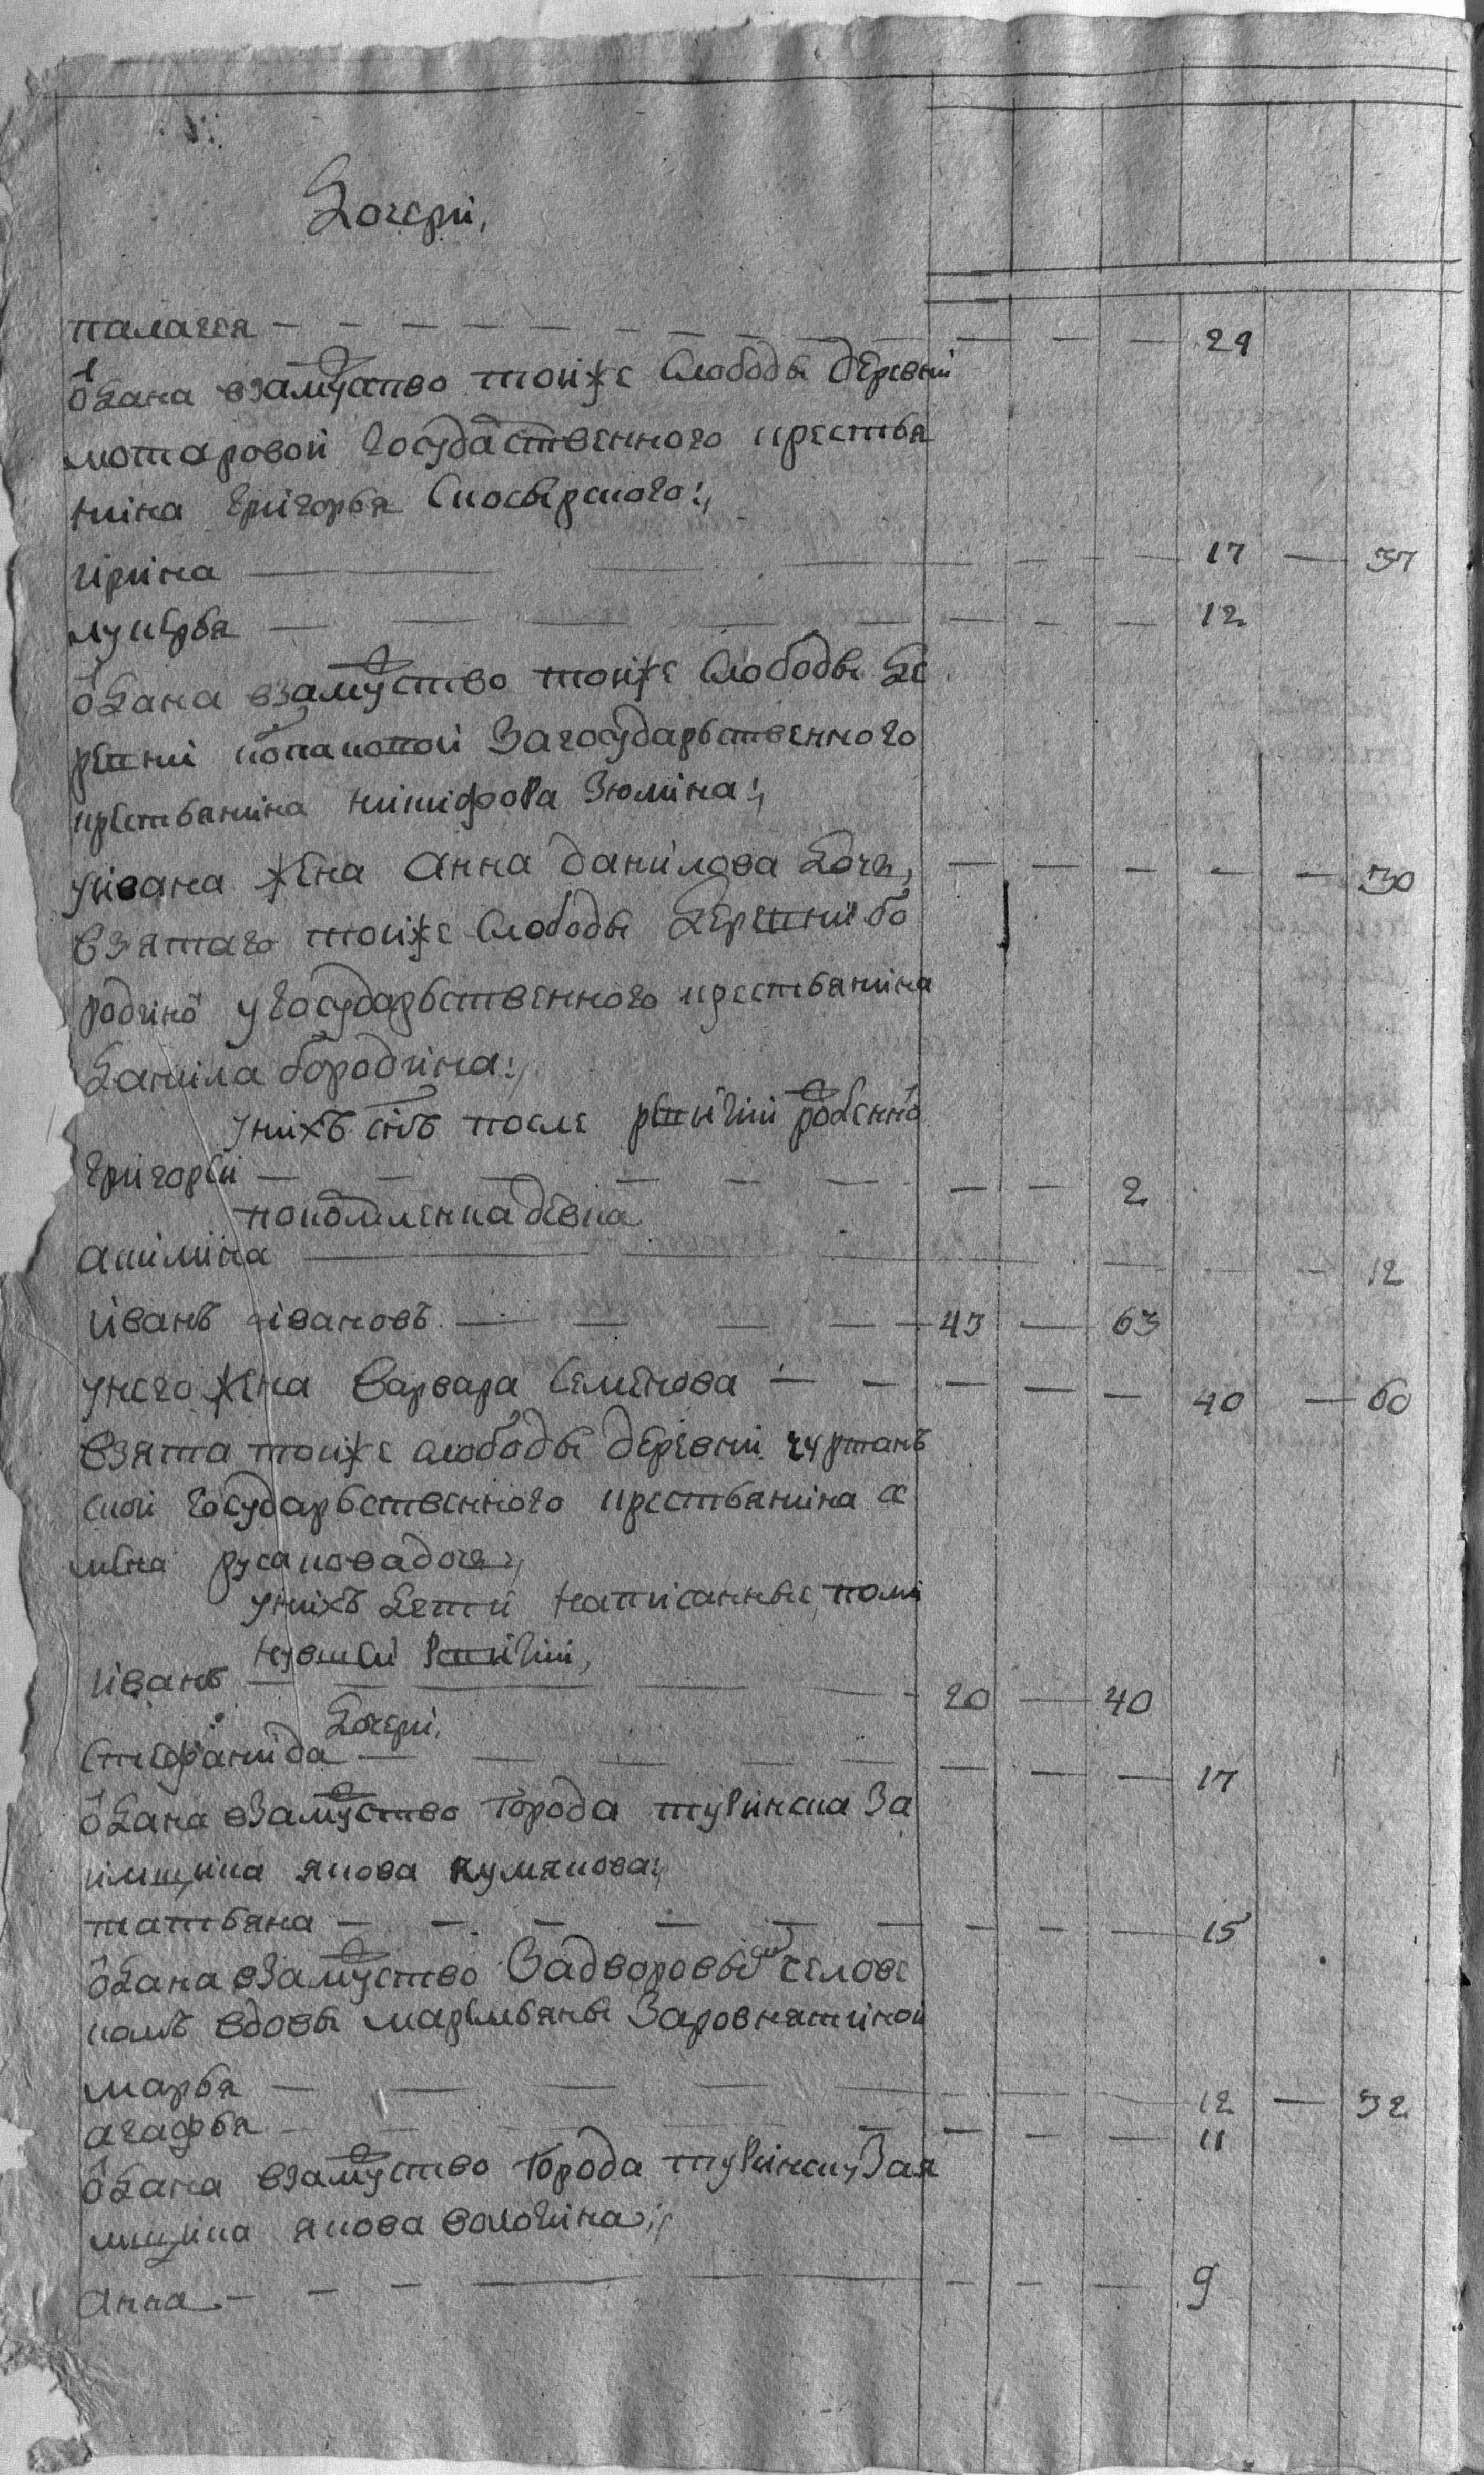 Дочери,
палагея — — — — 29
оѣдана взамуство тойже слободы деревни
мотаровой государственного крестья
нина григорья
ирина — — — 17 — 37
лукерья — — — 12
оѣдана взамуство тойже слободы де
ревни за государьственного
крестьянина никифора Зюмина:,
у ивана жена анна данилова дочь, — — — 30
взятаго тойже слободы деревни бо
родино у государьственного крестьянина
данила бородина:,
у нихъ снъ после ревизии рожденно
григореи — — — 2
девка
акилина — — — 12
иванъ ивановъ — — — 43 — 63
у него жена варвара семенова — — — 40 — 60
взята тойже слободы деревни чуртанъ
ской государьственного крестьянина се
мена русакова дочь,
у нихъ дети написанные, поми
нувшеи ревизии,
иванъ — — — 20 — 40
Дочери,
степанида — — — 17
оѣдана взамуство города туринска за
имщика якова кумякова:,
татьяна — — — 15
оѣдана взамуство задворовым челове
комъ вдовы маремьяны заровнятиной
марья — — — 12 — 32
агафья — — — 11
оѣдана взамуство города туринску зая
мщика якова вологина:,
анна — — — 9